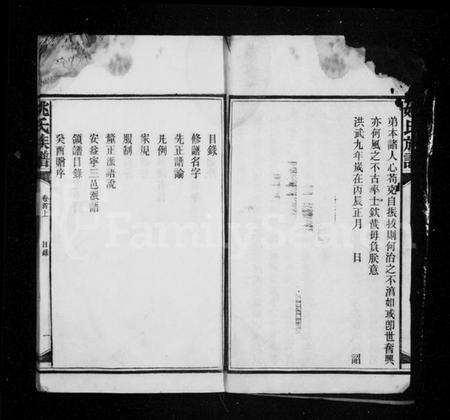 弟本諸人心苟克自振拔則何治之不淯如或卽世奮興
亦何風之不古率士欽哉毋負朕意
洪武九年歲在丙辰正月 日 詔
姚氏族譜
目錄
修譜名字
先正譜論
凡例
家規
服制
釐正派說
安益寧三邑派語
領譜目錄
癸酉贈序
姚氏族譜
卷首上
目錄
FamilySearch